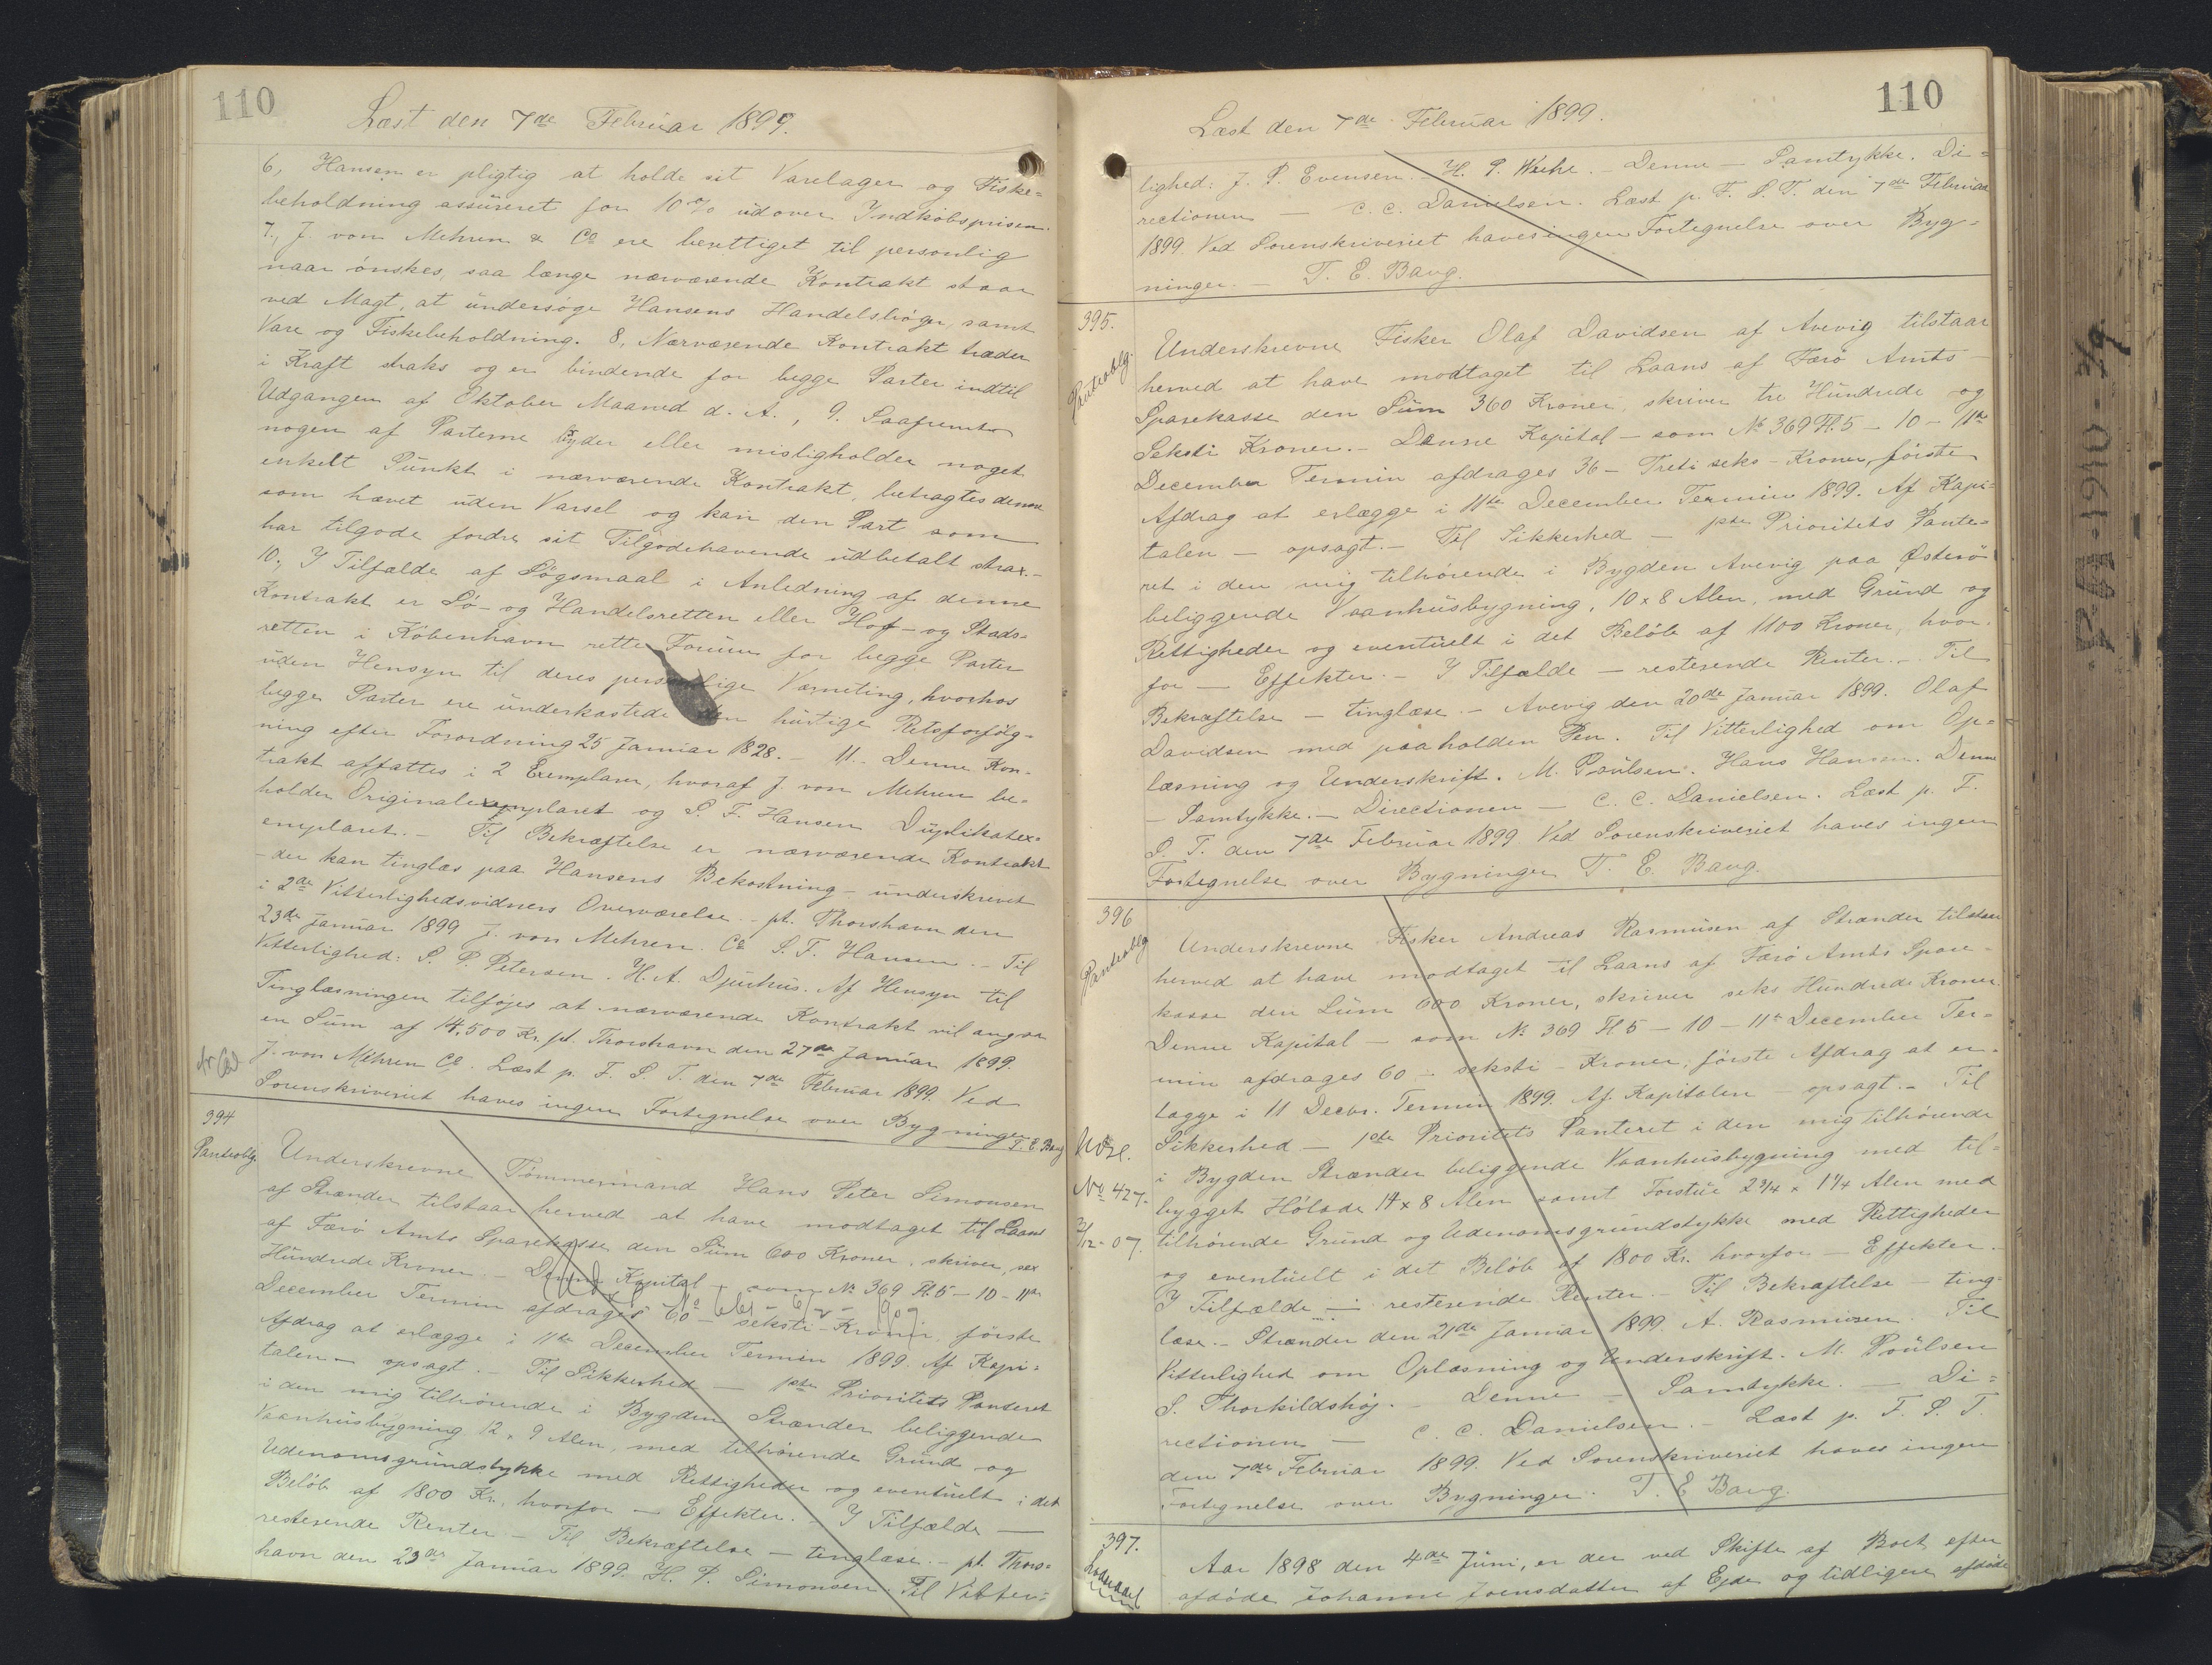 110
Læst den 7de Februar 1899.
6, Hansen er pligtig at holde sit Varelager og Fiske=
beholdning assureret for 10% udover Indköbsprisen.
7., J. von Mehren & Co ere berettiget til personlig
naar önskes, saa længe nærværende Kontrakt staar
ved Magt, at undersöge Hansens Handelsböger, samt
Vare og Fiskebeholdning. 8, Nærværende Kontrakt træder
i Kraft straks og er bindende for begge Parter indtil
Udgangen af Oktober Maaned d. A., 9. Saafremt
nogen af Parterne bryder eller misligholder noget
enkelt Punkt i nærværende Kontrakt, betragtes denne
som hævet uden Varsel og kan den Part som
har tilgode fordre sit Tilgodehavende udbetalt strax.-
10., I Tilfælde af Sögsmaal i Anledning af denne
Kontrakt er Sö- og Handelsretten eller Hof- og Stads=
retten i Köbenhavn rette Forum for begge Parter
uden Hensyn til deres personlige Værneting, hvorhos
begge Parter ere underkastede den hurtige Retsforfölg=
ning efter Forordning 25 Januar 1828. - 11.- Denne Kon-
trakt affattes i 2 Exemplarer, hvoraf J. von Mehren be=
holder Originalexemplaret og S. F. Hansen Duplikatex=
emplaret. - Til Bekræftelse er nærværende Kontrakt
- der kan tinglæs paa Hansens Bekostning - underskrevet
i 2de Vitterlighedsvidners Overværelse. - pt. Thorshavn den
23de Januar 1899 J. von Mehren. Co S. F. Hansen. - Til
Vitterlighed: S. P. Petersen. H. A. Djurhus. Af Hensyn til
Tinglæsningen tilföjes at nærværende Kontrakt vil angaa
en Sum af 14,500 Kr. pt. Thorshavn den 27de Januar 1899.
J. von Mehren Co. Læst p. F. S. T. den 7de Februar 1899. Ved
Sorenskriveriet haves ingen Fortegnelse over Bygninger
T. E. Bang
394
Panteoblg.
Underskrevne Tömmermand Hans Peter Simonsen
af Strænder tilstaar herved at have modtaget til Laans
af Færö Amts Sparekasse den Sum 600 Kroner, skriver, sex
Hundrede Kroner. - Denne Kapital - som No 369 Fl.5 - 10 - 11te
December Termin afdrages 60 - seksti - Kroner, förste
Afdrag at erlægge i 11te December Termin 1899. Af Kapi=
talen - opsagt. - Til Sikkerhed - 1ste Prioritets Panteret
i den mig tilhörende i Bygden Strænder beliggende
Vaanhusbygning 12 x 9 Alen, med tilhörende Grund og
Udenomsgrundstykke med Rettigheder og eventuelt i det
Belöb af 1800 Kr, hvorfor - Effekter. - I Tilfælde -
resterende Renter - Til Bekræftelse - tinglæse. - pt. Thors=
havn den 23de Januar 1899. H. P. Simonsen. Til Vitter=
110
Læst den 7de Februar 1899.
lighed: J. P. Evensen. - H. P. Weihe. - Denne - Samtykke. Di=
rectionen - C. C. Danielsen. Læst p. F. S. T. den 7de Februar
1899. Ved Sorenskriveriet haves ingen Fortegnelse over Byg=
ninger. - T. E. Bang.
395.
Panteoblg.
Underskrevne Fisker Olaf Davidsen af Avevig tilstaar
herved at have modtaget til Laans af Færö Amts
Sparekasse den Sum 360 Kroner, skriver tre Hundrede og
Seksti Kroner. - Denne Kapital - som No 369 Fl.5 - 10 - 11te
December Termin afdrages 36 - Treti seks - Kroner, förste
Afdrag at erlægge i 11te December Termin 1899. Af Kapi=
talen - opsagt. - Til Sikkerhed - 1ste Prioritets Pante=
ret i den mig tilhörende i Bygden Avevig paa Österö
beliggende Vaanhusbygning, 10 x 8 Alen, med Grund og
Rettigheder og eventuelt i det Belöb af 1100 Kroner, hvor-
for - Effekter. - I Tilfælde - resterende Renter. - Til
Bekræftelse - tinglæse. - Avevig den 20de Januar 1899. Olaf
Davidsen med paaholden Pen. Til Vitterlighed om Op=
læsning og Underskrift. M. Poulsen. Hans Hansen. Denne
- Samtykke. - Directionen - C. C. Danielsen. Læst p. F.
S. T. den 7de Februar 1899 Ved Sorenskriveriet haves ingen
Fortegnelse over Bygninger T. E. Bang.
396
Panteoblg
Underskrevne Fisker Andreas Rasmusen af Strænder tilstaar
herved at have modtaget til Laans af Færö Amts Spare-
kasse den Sum 600 Kroner, skriver seks Hundrede Kroner.
Denne Kapital - som No 369 Fl 5 - 10 - 11te December Ter=
min afdrages 60 - seksti - Kroner, förste Afdrag at er-
lægge i 11 Decbr. Termin 1899. Af Kapitalen - opsagt. - Til
Sikkerhed - 1ste Prioritets Panteret i den mig tilhörende
i Bygden Strænder beliggende Vaanhusbygning med til=
No 427.
bygget Hölade 14 x 8 Alen samt Forstue 2 3/4 x 1 1/4 Alen med
tilhörende Grund og Udenomsgrundstykke med Rettigheder
og eventuelt i det Belöb af 1800 Kr. hvorfor - Effekter.
I Tilfælde - resterende Renter. - Til Bekræftelse - ting=
læse. - Strænder den 21de Januar 1899. A. Rasmusen. Til
Vitterlighed om Oplæsning og Underskrift. M. Poulsen
S. Thorkildshöj. - Denne - Samtykke. - Di=
rectionen - C. C. Danielsen. - Læst p. F. S. T.
den 7de Februar 1899. Ved Sorenskriveriet haves ingen
Fortegnelse over Bygninger. T. E Bang.
397.
Aar 1898 den 4de Juni, er der ved Skifte af Boet efter
afdöde Johanne Joensdatter af Ejde og tidligere afdöde